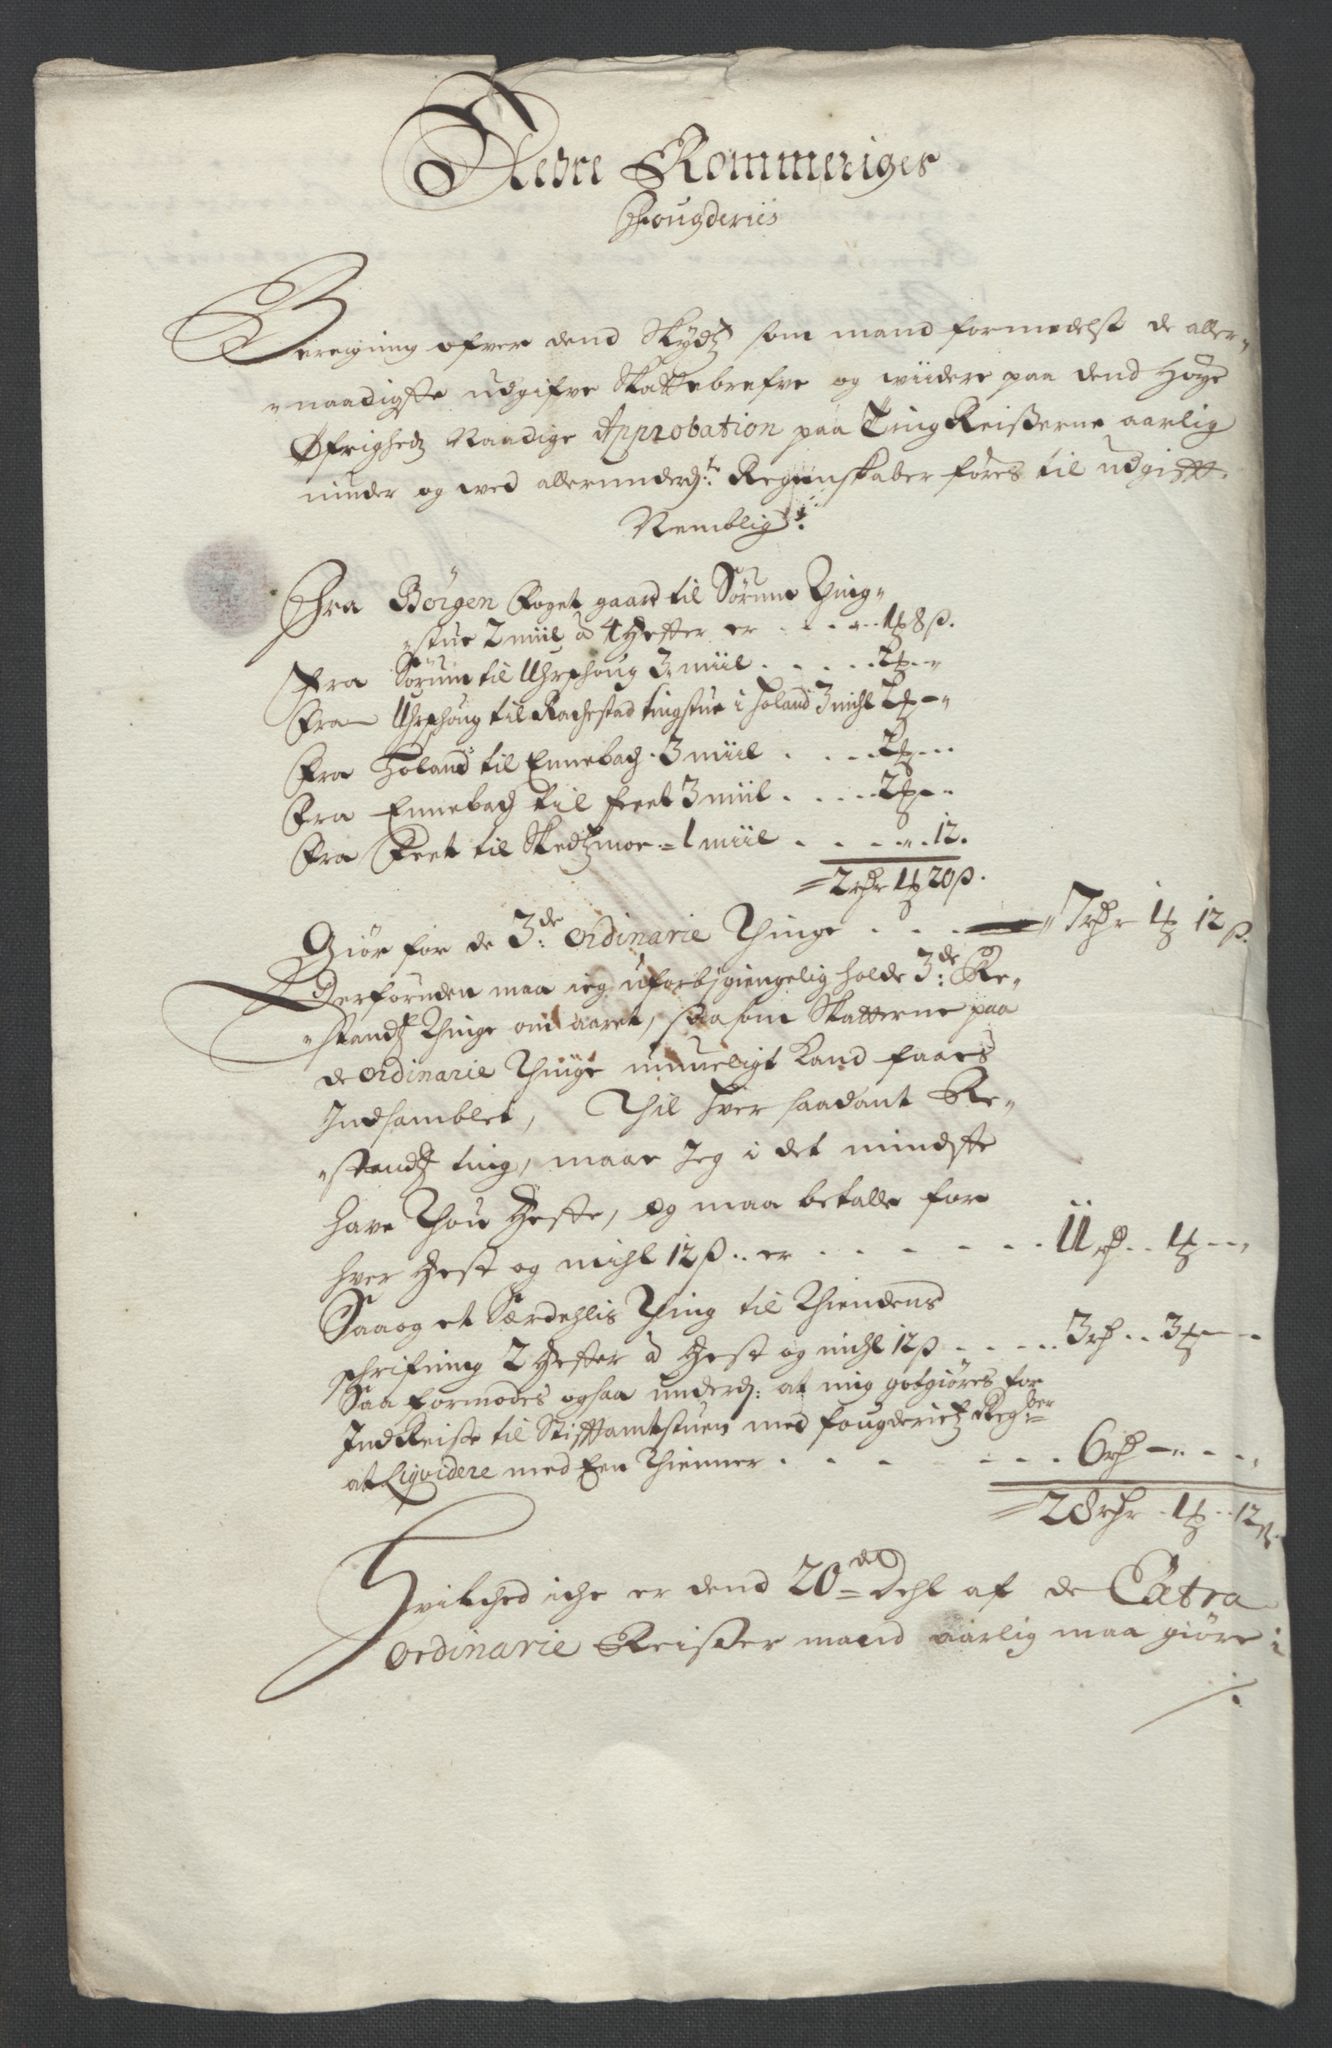 Nedre Rommeriges
Fougderies
Beregning ofver dend Skydtz som mand formedelst de aller-
naadigste udgifve Skattebrefve og wiidere paa dend Høye
Øfrigheds Naadige Approbation paa Ting Reisserne aarlig
niuder og wed allerunderd:te Regenskaber føres til udgifft.
Nemblig:
Fra Børgen Foget gaard til Sørum Ting-
stue 2 miil à 4 Hester er . . . . 1 ₻ 8 ß.
Fra Sørum til Uhrshoug 3 miil . . . . . 2 ₻ - -
Fra Uhrshoug til Rachestad tingstue i Holand 3 miihl 2 ₻ - -
Fra Holand til Ennebach 3 miil . . . . 2 ₻ - -
Fra Ennebach til Feet 3 miil . . . . 2 ₻ - -
Fra Feet til Skedtzmoe = 1 miil . . . . . 12.
= 2 rdr 1 ₻ 20 ß.
Giør for de 3:de ordinarie Thinge . . . 7 rdr 1 ₻ 12 ß.
Derforuden maa ieg uforbigiengelig holde 3:de Re-
standtz Thinge om aaret, saasom Skatterne paa
de ordinarie Thinge umueligt kand faaes
Indsamblet, Thil hver saadant Re-
standtz ting, maae Jeg i det mindste
have Thou Heste, og maa betalle for
hver Hest og miihl 12 ß .. er . . . . . . 11 rd .. 1 ₻ - -
Saa og et Særdehlis Thing til Thiendens
schrifning 2 Hester à Hest og miihl 12 ß . . . . . 3 rd .. 3 ₻ - -
Saa formodes ogsaa underd: at mig gotgiøres for
Ind Reise til Stifftamtstuen med fougderietz Regn:ber
at Liqvidere med Een Thienner . . . . . . 6 rdr - - -
= 28 rdr . 1 ₻ . 12 ß.
Hvilched iche er dend 20de Dehl af de Extra
ordinarie Reisser mand aarlig maa giøre i